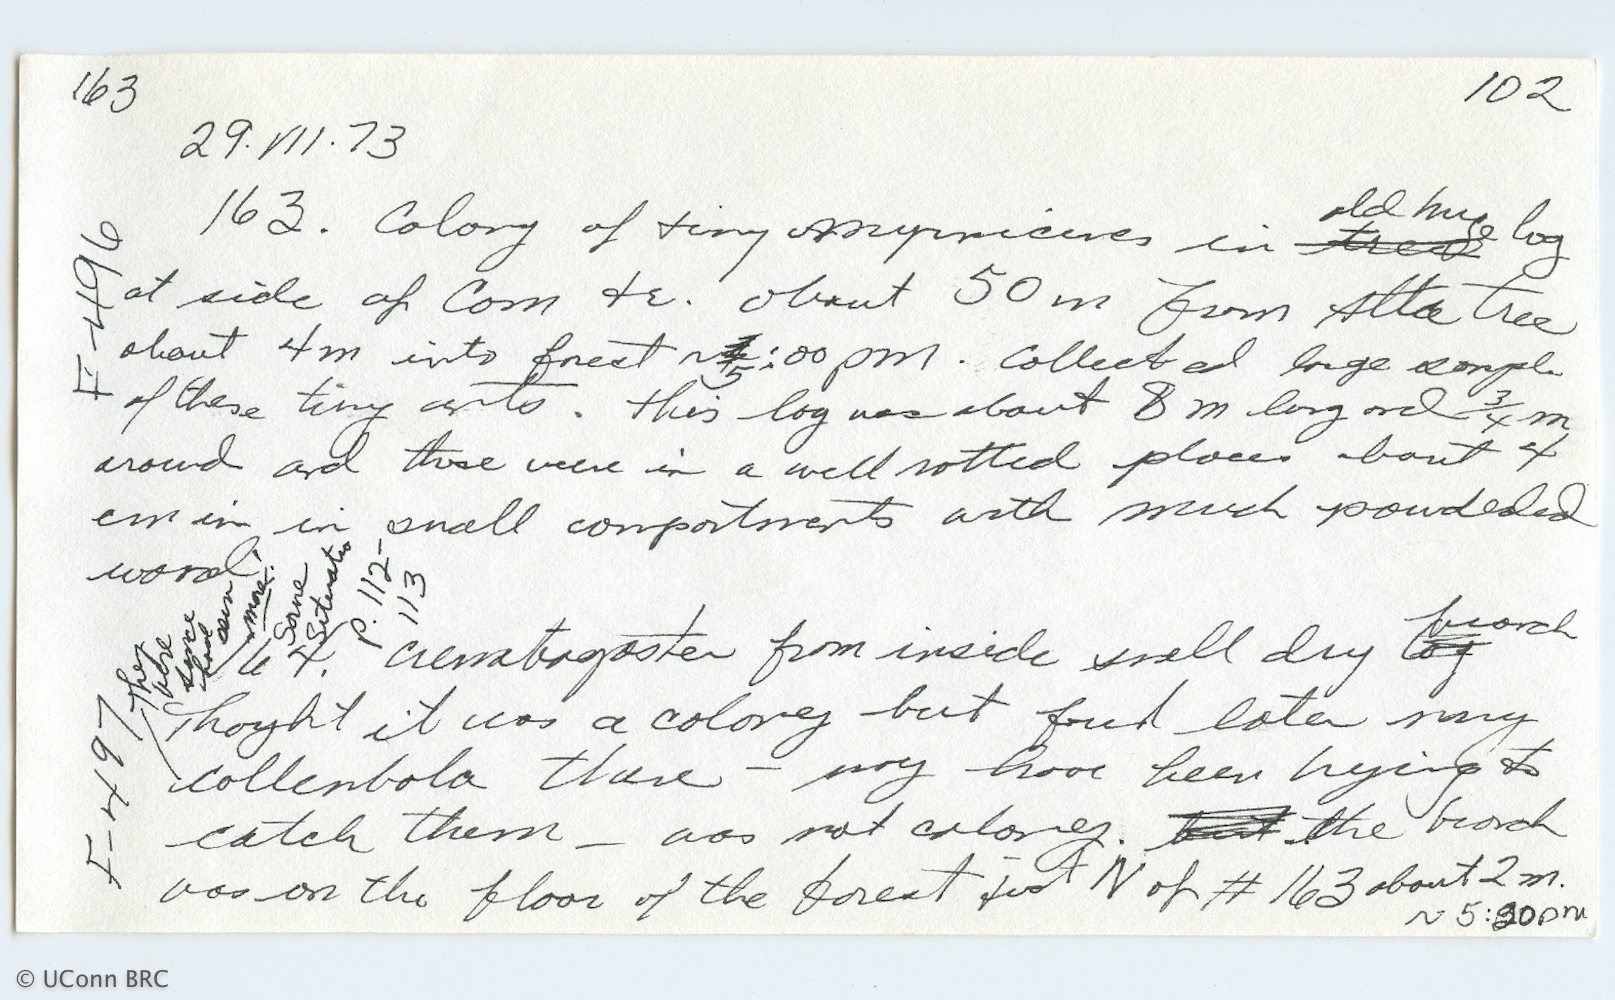 163
102
29.VII.73
163. Colony of tiny myrmicines in old huge log
at side of Com tr. about 50 m from Atta tree
about 4m into forest ~5:00 pm. Collected large sample
of these tiny ants. This log was about 8 m long and 3/4 m
around and these were in a well rotted places about 4
cm in in small compartments with much powdeded
wood.
F-496
They were
since have seen
more!
Same Situatio
p. 112-
113
164. Crematogaster from inside small dry branch
Thoght it was a coloney but foud later many
collenbola there - may have been trying to
catch them - was not coloney. The branch
was on the floor of the forest just N of # 163 about 2 m.
~ 5:30pm
F-497
© UConn BRC